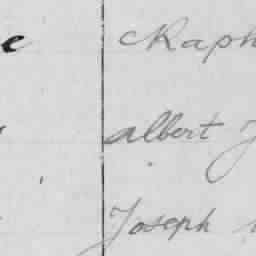 e Raph
albert J
Joseph